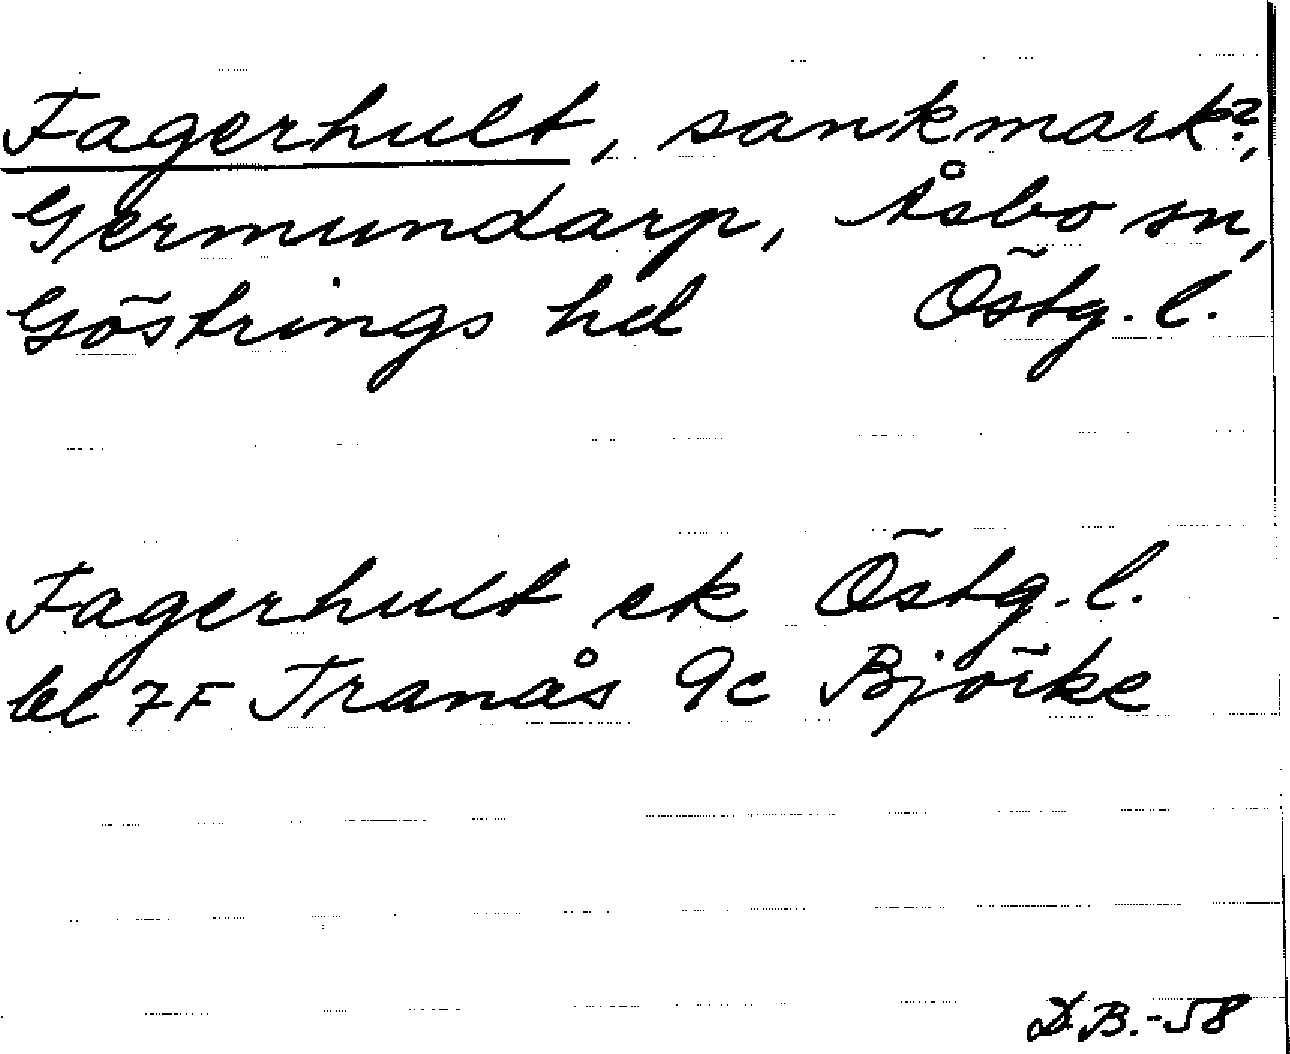 Fagerhult, sankmark?,
Germundarp, Åsbo sn,
Göstrings hd Östg. l.
Fagerhult ek Östg. l.
bl 7F Tranås 9c Björke
D.B.-58